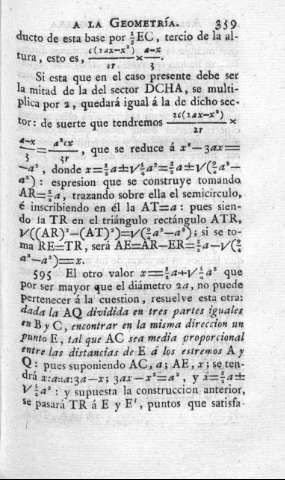 A LA GEOMETRÍA. 359
ducto de esta base por ½EC, tercio de la al-
tura, esto es, c(2ax-x²)/2r × a-x/3.
Si esta que en el caso presente debe ser
la mitad de la del sector DCHA, se multi-
plica por 2, quedará igual á la de dicho sec-
tor: de suerte que tendremos 2c(2ax-x²)/2r ×
a-x/3 = a²cx/3r, que se reduce á x²-3ax=
-a², donde x=3/2a±√5/4a²=3/2a±√(9/4a²-
a²): espresion que se construye tomando
AR=3/2a, trazando sobre ella el semicírculo,
é inscribiendo en él la AT=a: pues sien-
do la TR en el triángulo rectángulo ATR,
√((AR)²-(AT)²)=√(9/4a²-a²); si se to-
ma RE=TR, será AE=AR-ER=3/2a-√(9/4
a²-a²)=x.
595 El otro valor x=3/2a+√5/4a² que
por ser mayor que el diámetro 2a, no puede
pertenecer á la cuestion, resuelve esta otra:
dada la AQ dividida en tres partes iguales
en B y C, encontrar en la misma direccion un
punto E, tal que AC sea media proporcional
entre las distancias de E á los estremos A y
Q: pues suponiendo AC, a; AE, x; se ten-
drá x:a:a:3a-x; 3ax-x²=a², y x=3/2a±
√5/4a²: y supuesta la construccion anterior,
se pasará TR á E y E', puntos que satisfa-